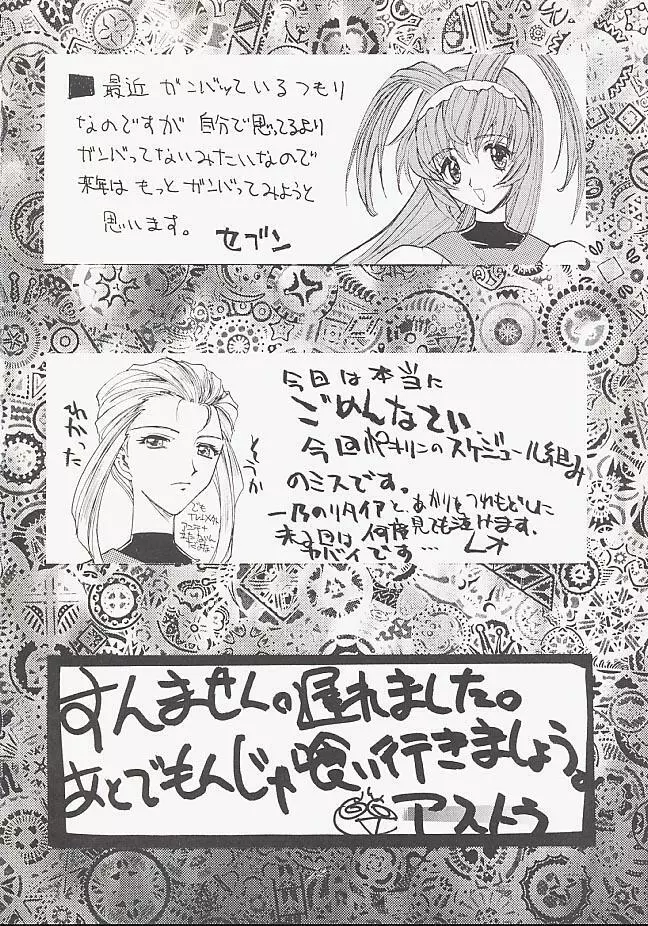 最近 ガンバッているつもり
なのですが 自分で思ってるより
ガンバってないみたいなので
来年は もっとガンバってみようと
思います。 セブン
今回は本当に
ごめんなさい
今回 のスケジュール組み
のミスです。
一乃のリタイアと、あかりをつれもどしに
来る回は 何度見ても泣けます。
ヤバイです…
すんません。遅れました。
あとでもんじゃ喰い行きましょう。
アストラ